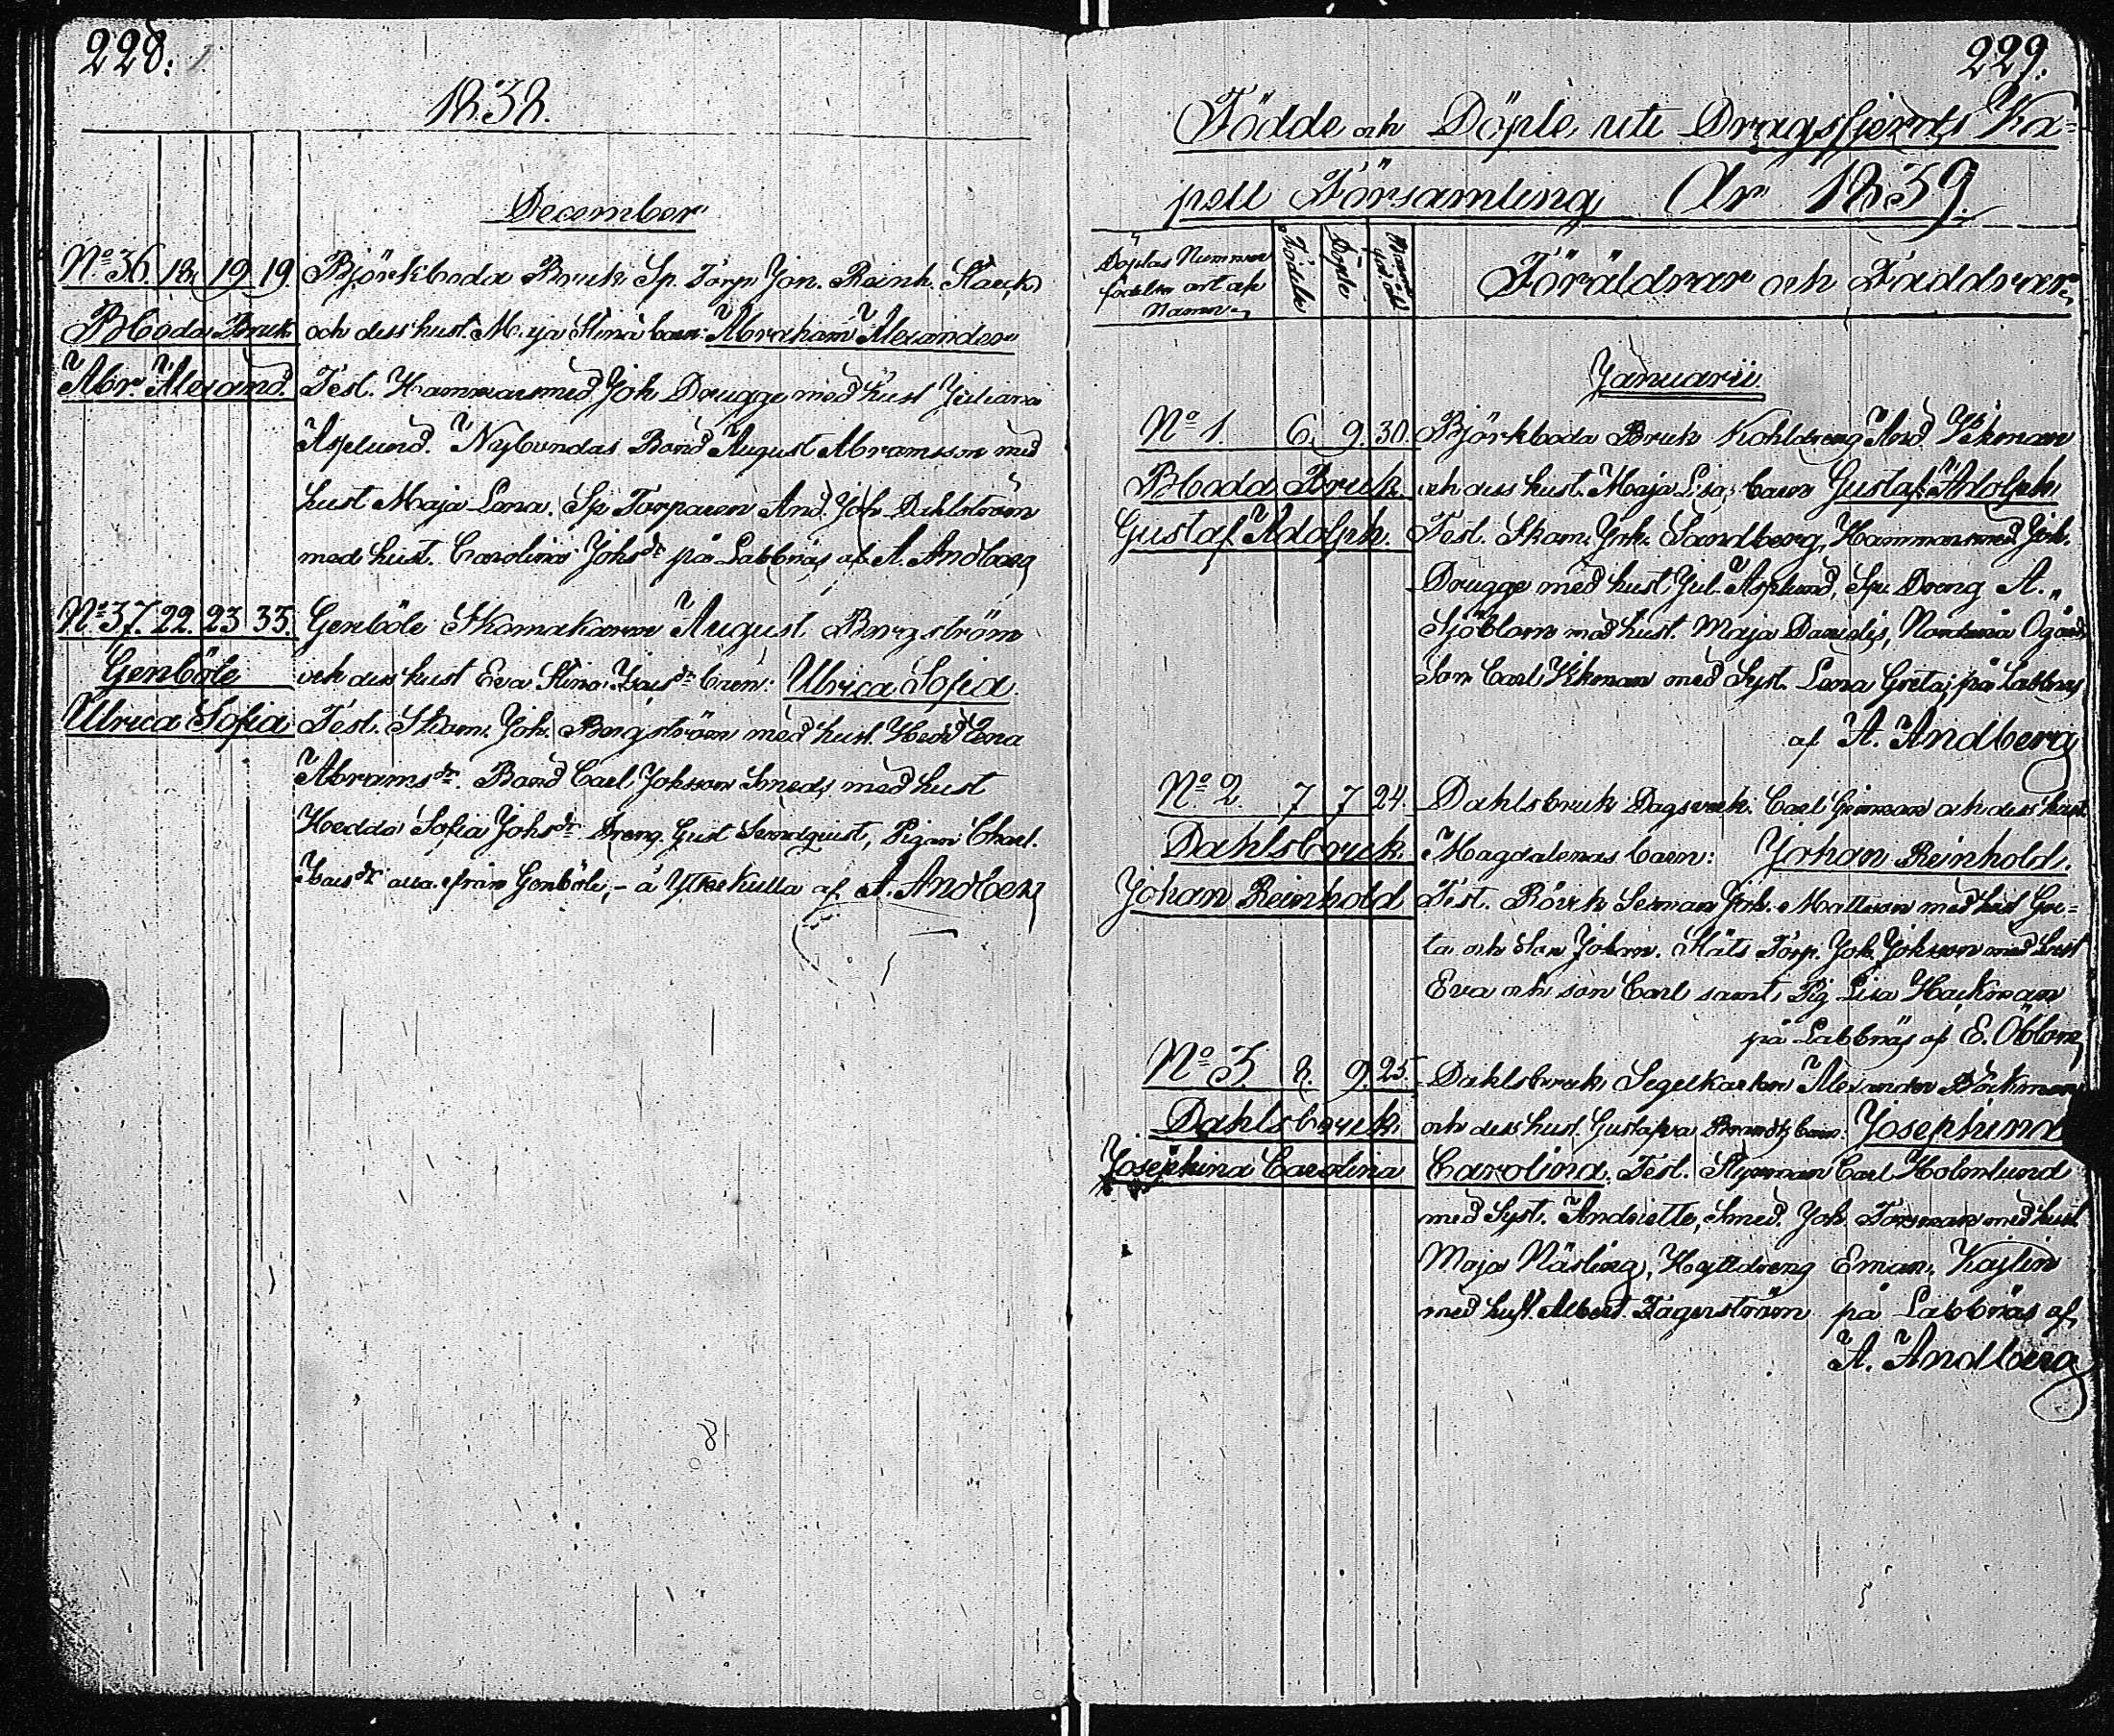 228.
1838.
December
No 36. 18. 19. 19. Björkboda Bruk Sp. Torp. Joh. Reinh. Stack
Bboda Bruk och dess hust. Maja Stina barn: Abraham Alexander
Abr. Alexand. Test. Hammarsmed Joh Drugge med hust Juliana
Asplund. Nybondas Bond August Abramsson med
hust Maja Lena. Sp Torparen And. Joh Dahlström
med hust. Carolina Johsdr på Labbnäs af A. Andberg
No 37. 22. 23 35. Genböle Skomakaren August Bergström
Genböle och dess hust Eva Stina Isacsdr barn: Ulrica Sofia.
Ulrica Sofia Test. Skom. Joh. Bergström med hust. Hedd Lena
Abramsdr. Bond Carl Johsson Smeds med hust
Hedda Sofia Johsdr Dreng. Gust Sundquist, Pigan Charl.
Isacsdr alla från Genböle, - å Ytterkulla af A. Andberg
8
229.
Födde och Döpte uti Dragsfjerds Ka=
pell Församling År 1839.
Döptas Nummer födelse ort och Namn Födde Döpte Föräldrar och Faddrar.
Januarii
No 1. 6. 9. 30. Björkboda Bruk Kohldreng And. Vikman
Bboda Bruk. och dess hust. Maja Lisas barn Gustaf Adolph
Gustaf Adolph. Test. Skom. Joh. Sandberg, Hammarsmed Joh.
Drugge med hust Jul. Asplund, Sp. Dreng A.
Sjöblom med hust. Maja Danielsj,
Son Carl Vikman med Syst. Lena Greta; på Labbnäs
af A. Andberg
No 2. 7 7 24. Dahlsbruk Dagsverk. Carl Grönman och dess hust
Dahlsbruk. Magdalenas barn: Johan Reinhold.
Johan Reinhold Test. Rövik Seman Joh. Mattsson med hust Gre=
ta och Son Johan. Torp. Joh. Johsson med hust
Eva och son Carl samt Pig Lisa Hackman
på Labbnäs af E. Öblom
No 3. 8. 9. 25. Dahlsbruk Segelkarlen Alexander Böckman
Dahlsbruk. och dess hust Gustafva Brandts barn Josephina
Josephina Carolina Carolina. Test. Styrman Carl Holmlund
med Syst. Andriette, Smed. Joh Forsman med hust
Maja Näsling, Hyttdreng Eman. Kajlin
med hust. Albert. Fagerström på Labbnäs af
A. Andberg